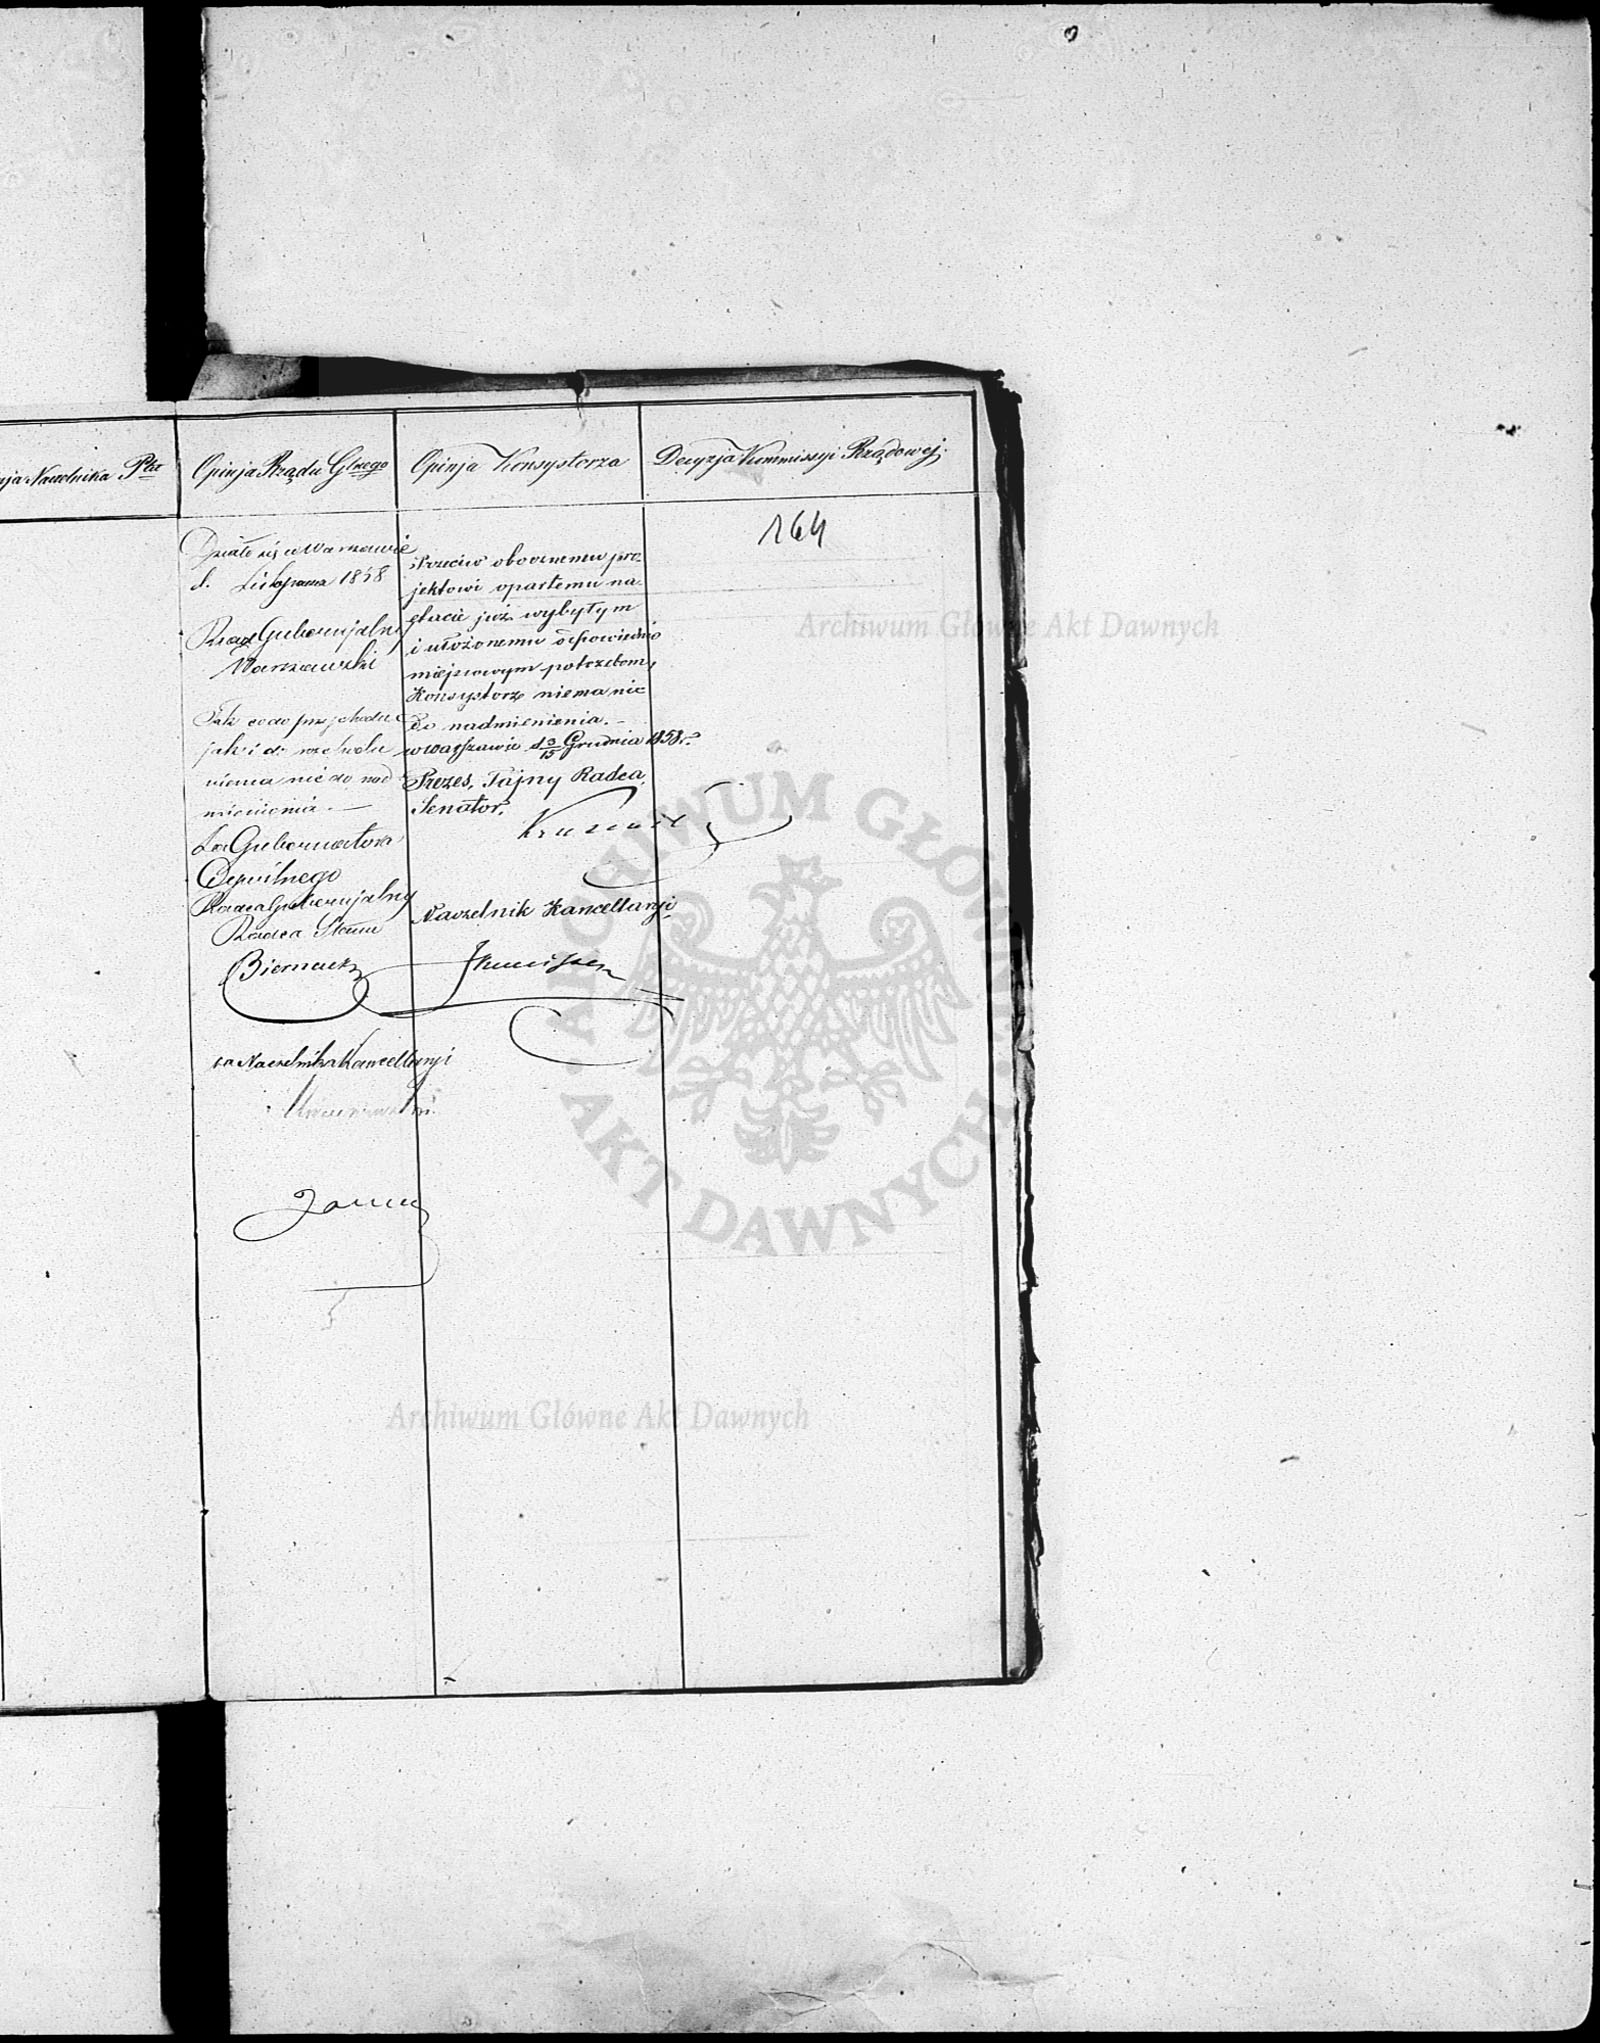 Naczelnika Ptu
Opinja Rządu Glnego
Opinja Konsystorza
Decyzja Kommissyi Rządowej.
164
Działo się w Warszawie
d. Listopada 1858
Rząd Gubernjalny
Warszawski
Tak co do przychodu
jak i do rozchodu
niema nic do nad
mienienia.—
Za Gubernatora
Cywilnego
Radca Gubernjalny
Radca Stanu
Biernacki
za Naczelnika Kancellaryi
Przeciw obocznemu pro-
jektowi opartemu na
etacie już wybytym
i ułożonemu odpowiednio
miejscowym potrzebom,
Konsystorz niema nic
do nadmienienia.—
w Warszawie d 3/15 Grudnia 1858 r.
Prezes, Tajny Radca,
Senator,
Naczelnik Kancellaryi,
Archiwum Główne Akt Dawnych
ARCHIWUM GŁÓWNE
AKT DAWNYCH
Archiwum Główne Akt Dawnych